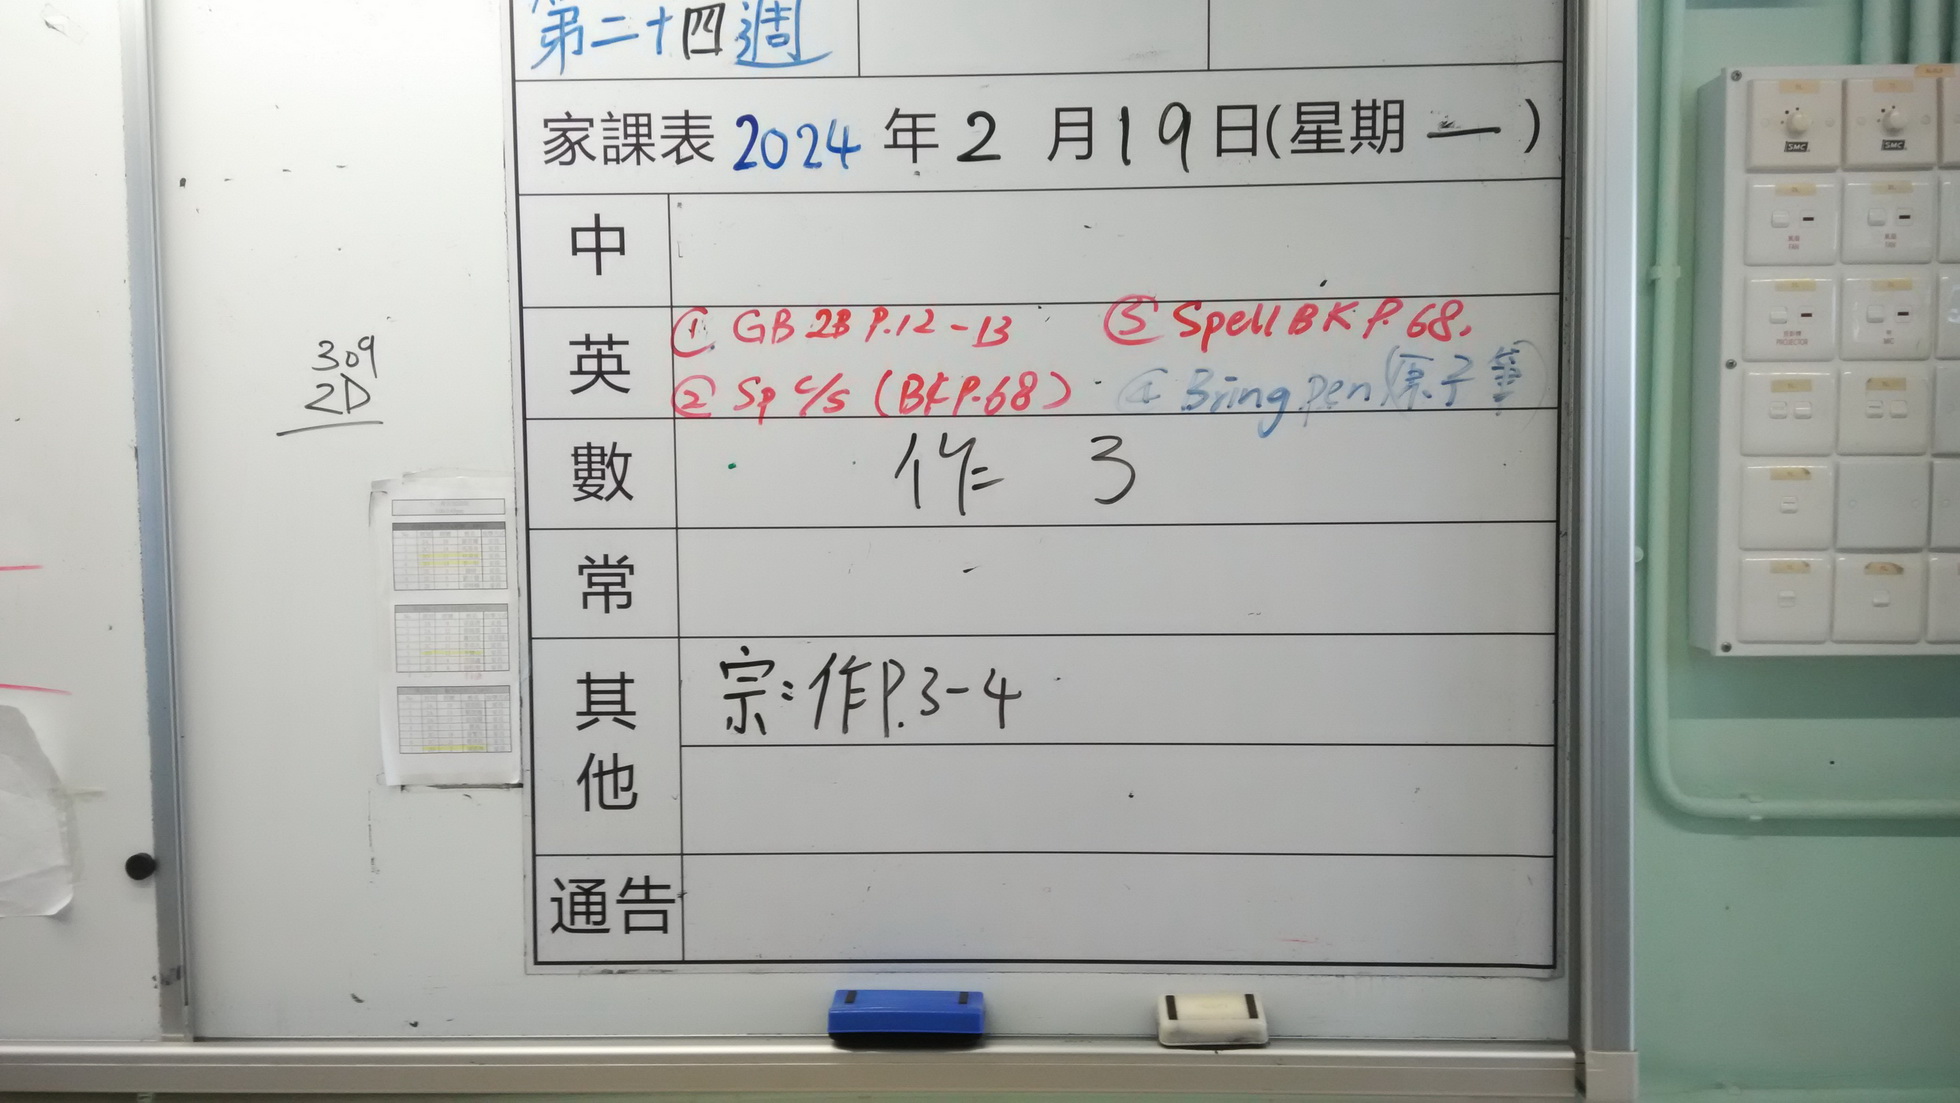 第二十四週
家課表 2024 年 2 月 19 日(星期 一 )
中
英
① GB 2B P.12-13
③ Spell BK P.68.
② Sp c/s (BK P.68)
④ Bring pen (原子筆)
數
作 3
常
其他
宗:作P.3-4
通告
309
2D
SMC
SMC